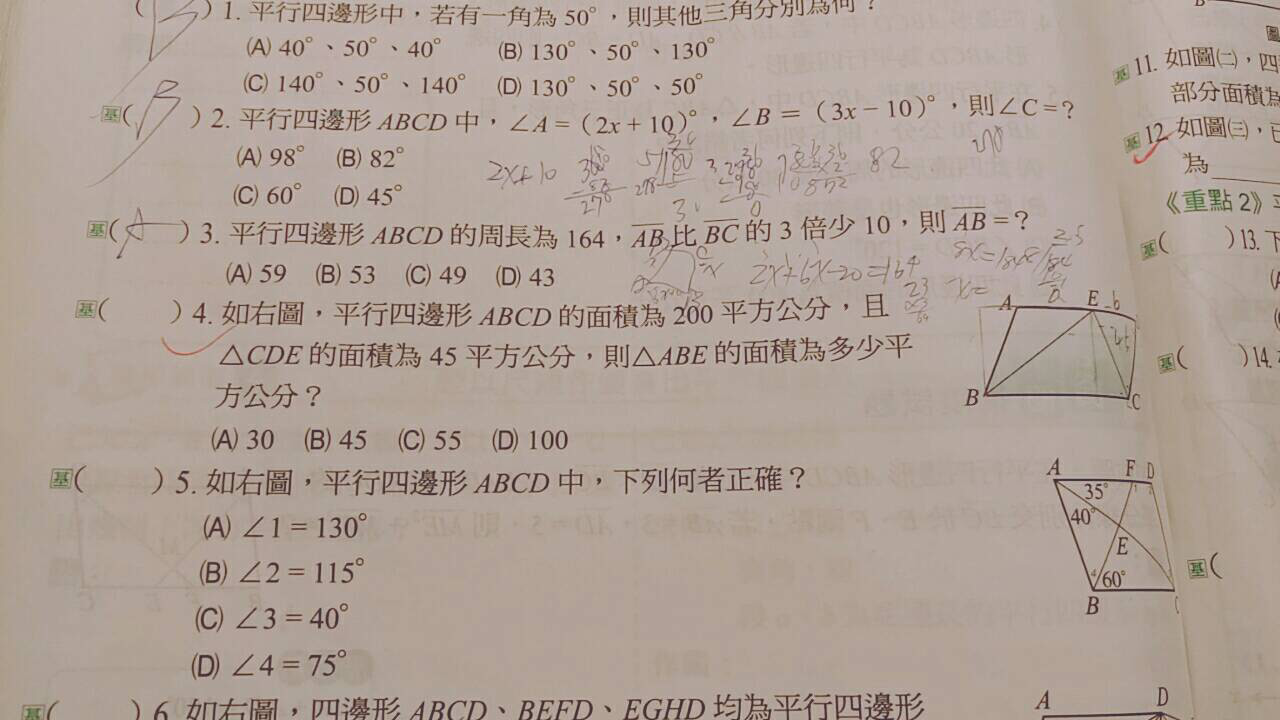 ( B ) 1. 平行四邊形中，若有一角為 50°，則其他三角分別為何？
(A) 40°、50°、40° (B) 130°、50°、130°
(C) 140°、50°、140° (D) 130°、50°、50°
基( B ) 2. 平行四邊形 ABCD 中，∠A =（2x + 10）°，∠B =（3x − 10）°，則∠C =？
(A) 98° (B) 82°
(C) 60° (D) 45°
2x+10
82
基( A ) 3. 平行四邊形 ABCD 的周長為 164，AB 比 BC 的 3 倍少 10，則 AB =？
(A) 59 (B) 53 (C) 49 (D) 43
2x+6x-20=164
基( ) 4. 如右圖，平行四邊形 ABCD 的面積為 200 平方公分，且
△CDE 的面積為 45 平方公分，則△ABE 的面積為多少平
方公分？
(A) 30 (B) 45 (C) 55 (D) 100
A E
B C
基( ) 5. 如右圖，平行四邊形 ABCD 中，下列何者正確？
(A) ∠1 = 130°
(B) ∠2 = 115°
(C) ∠3 = 40°
(D) ∠4 = 75°
A F D
35°
40°
E
60°
B
基( ) 6. 如右圖，四邊形 ABCD、BEFD、EGHD 均為平行四邊形
A D
基 11. 如圖㈡，四
部分面積為
基 12. 如圖㈢，已
為
《重點 2》平
基( ) 13. 下
基( ) 14.
基(